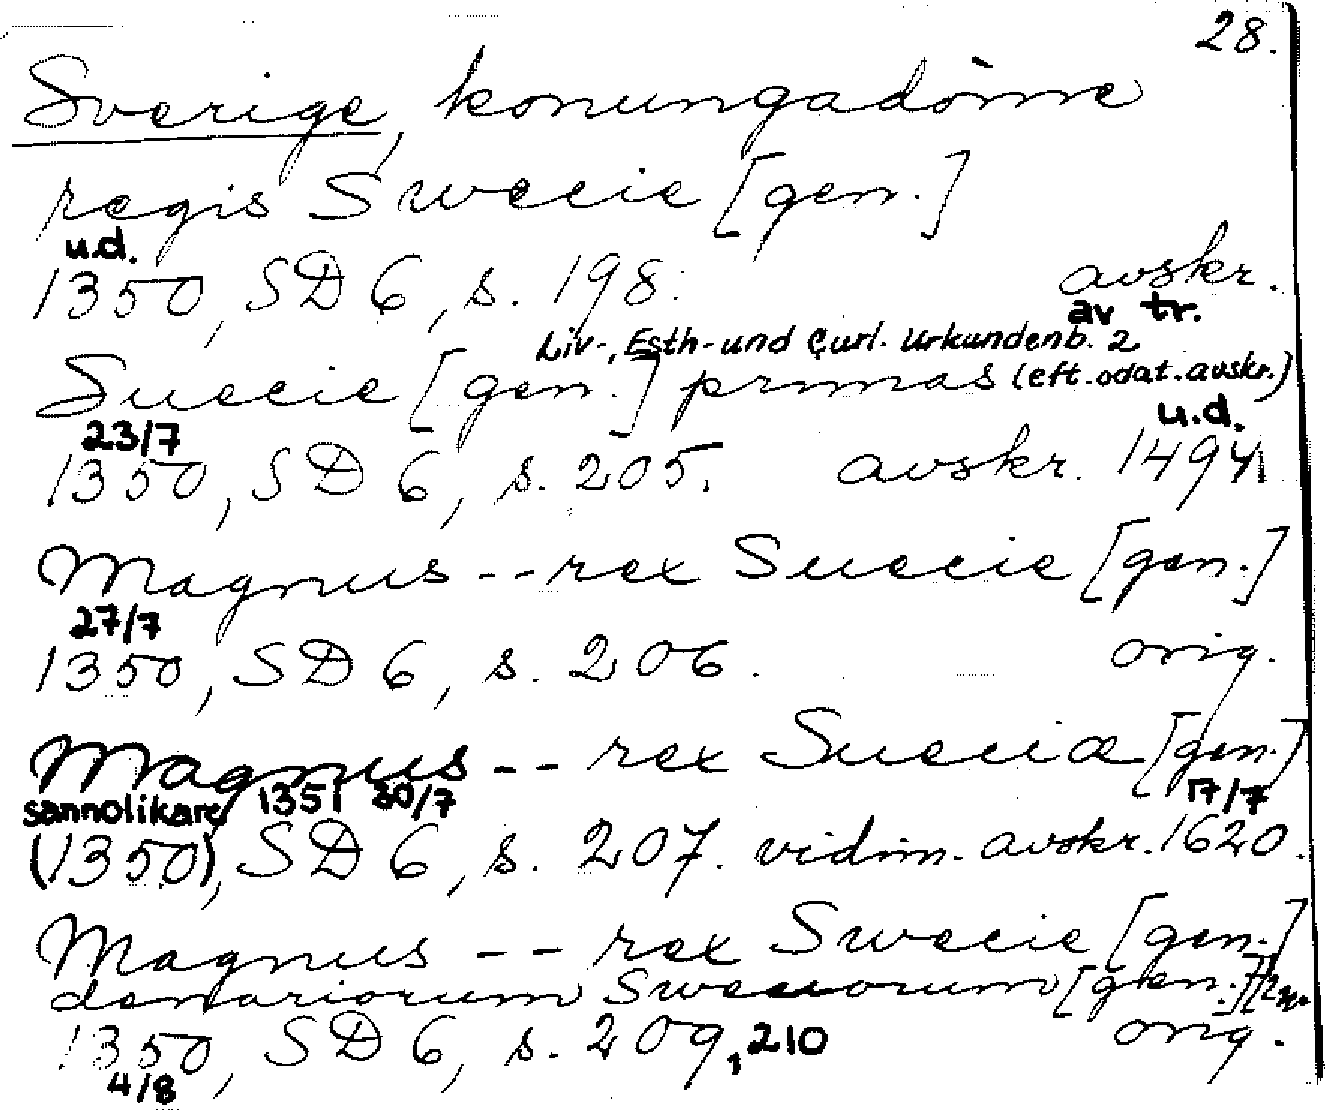 28.
Sverige, konungadöme
regis Swecie [gen.]
u.d.
1350, SD 6, s. 198. avskr.
av tr.
Liv-, Esth- und Curl. Urkundenb. 2
Suecie [gen.] primas (eft. odat. avskr.)
23/7 u.d.
1350, SD 6, s. 205. avskr. 1494
Magnus -- rex Suecie [gen.]
27/7
1350, SD 6, s. 206. orig.
Magnus -- rex Sueciæ [gen.]
sannolikare 1351 30/7 17/7
(1350), SD 6, s. 207. vidim. avskr. 1620.
Magnus -- rex Swecie [gen.]
denariorum Sweuorum [gen.]
1350, SD 6, s. 209, 210 orig.
4/8